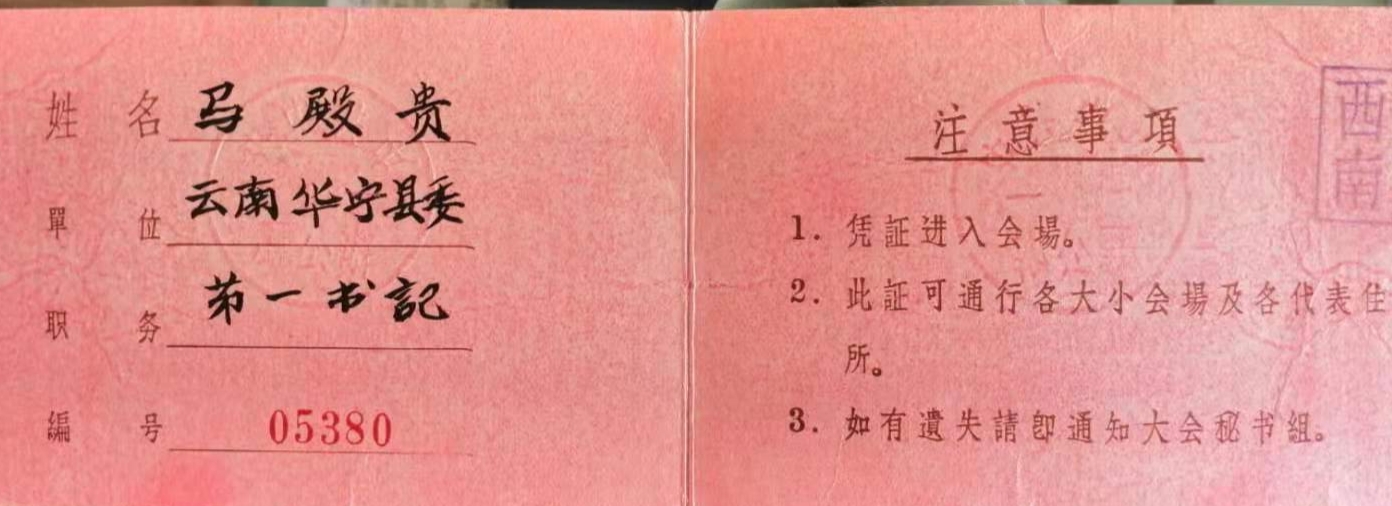 姓名 马殿贵
單位 云南华宁县委
职务 第一书記
編号 05380
注意事項
1. 凭証进入会場。
2. 此証可通行各大小会場及各代表住
所。
3. 如有遺失請卽通知大会秘书組。
西南